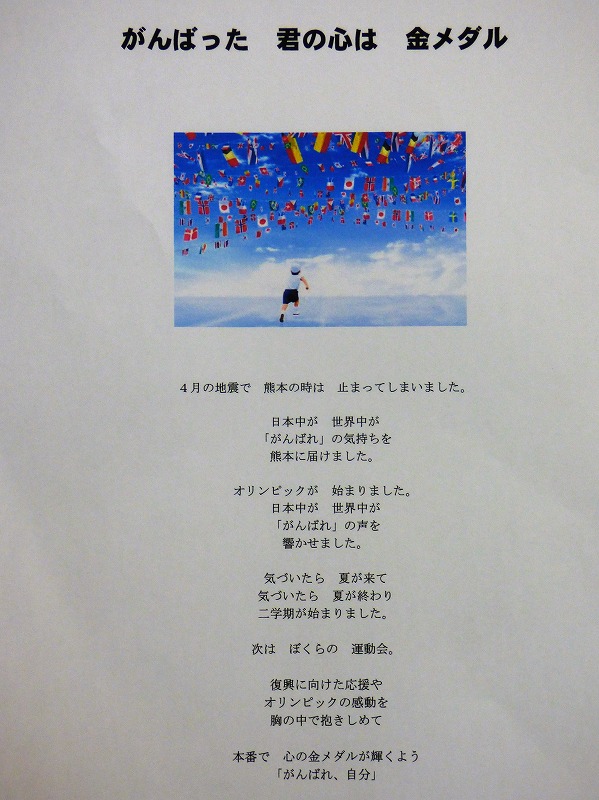 がんばった　君の心は　金メダル
４月の地震で　熊本の時は　止まってしまいました。
日本中が　世界中が
「がんばれ」の気持ちを
熊本に届けました。
オリンピックが　始まりました。
日本中が　世界中が
「がんばれ」の声を
響かせました。
気づいたら　夏が来て
気づいたら　夏が終わり
二学期が始まりました。
次は　ぼくらの　運動会。
復興に向けた応援や
オリンピックの感動を
胸の中で抱きしめて
本番で　心の金メダルが輝くよう
「がんばれ、自分」